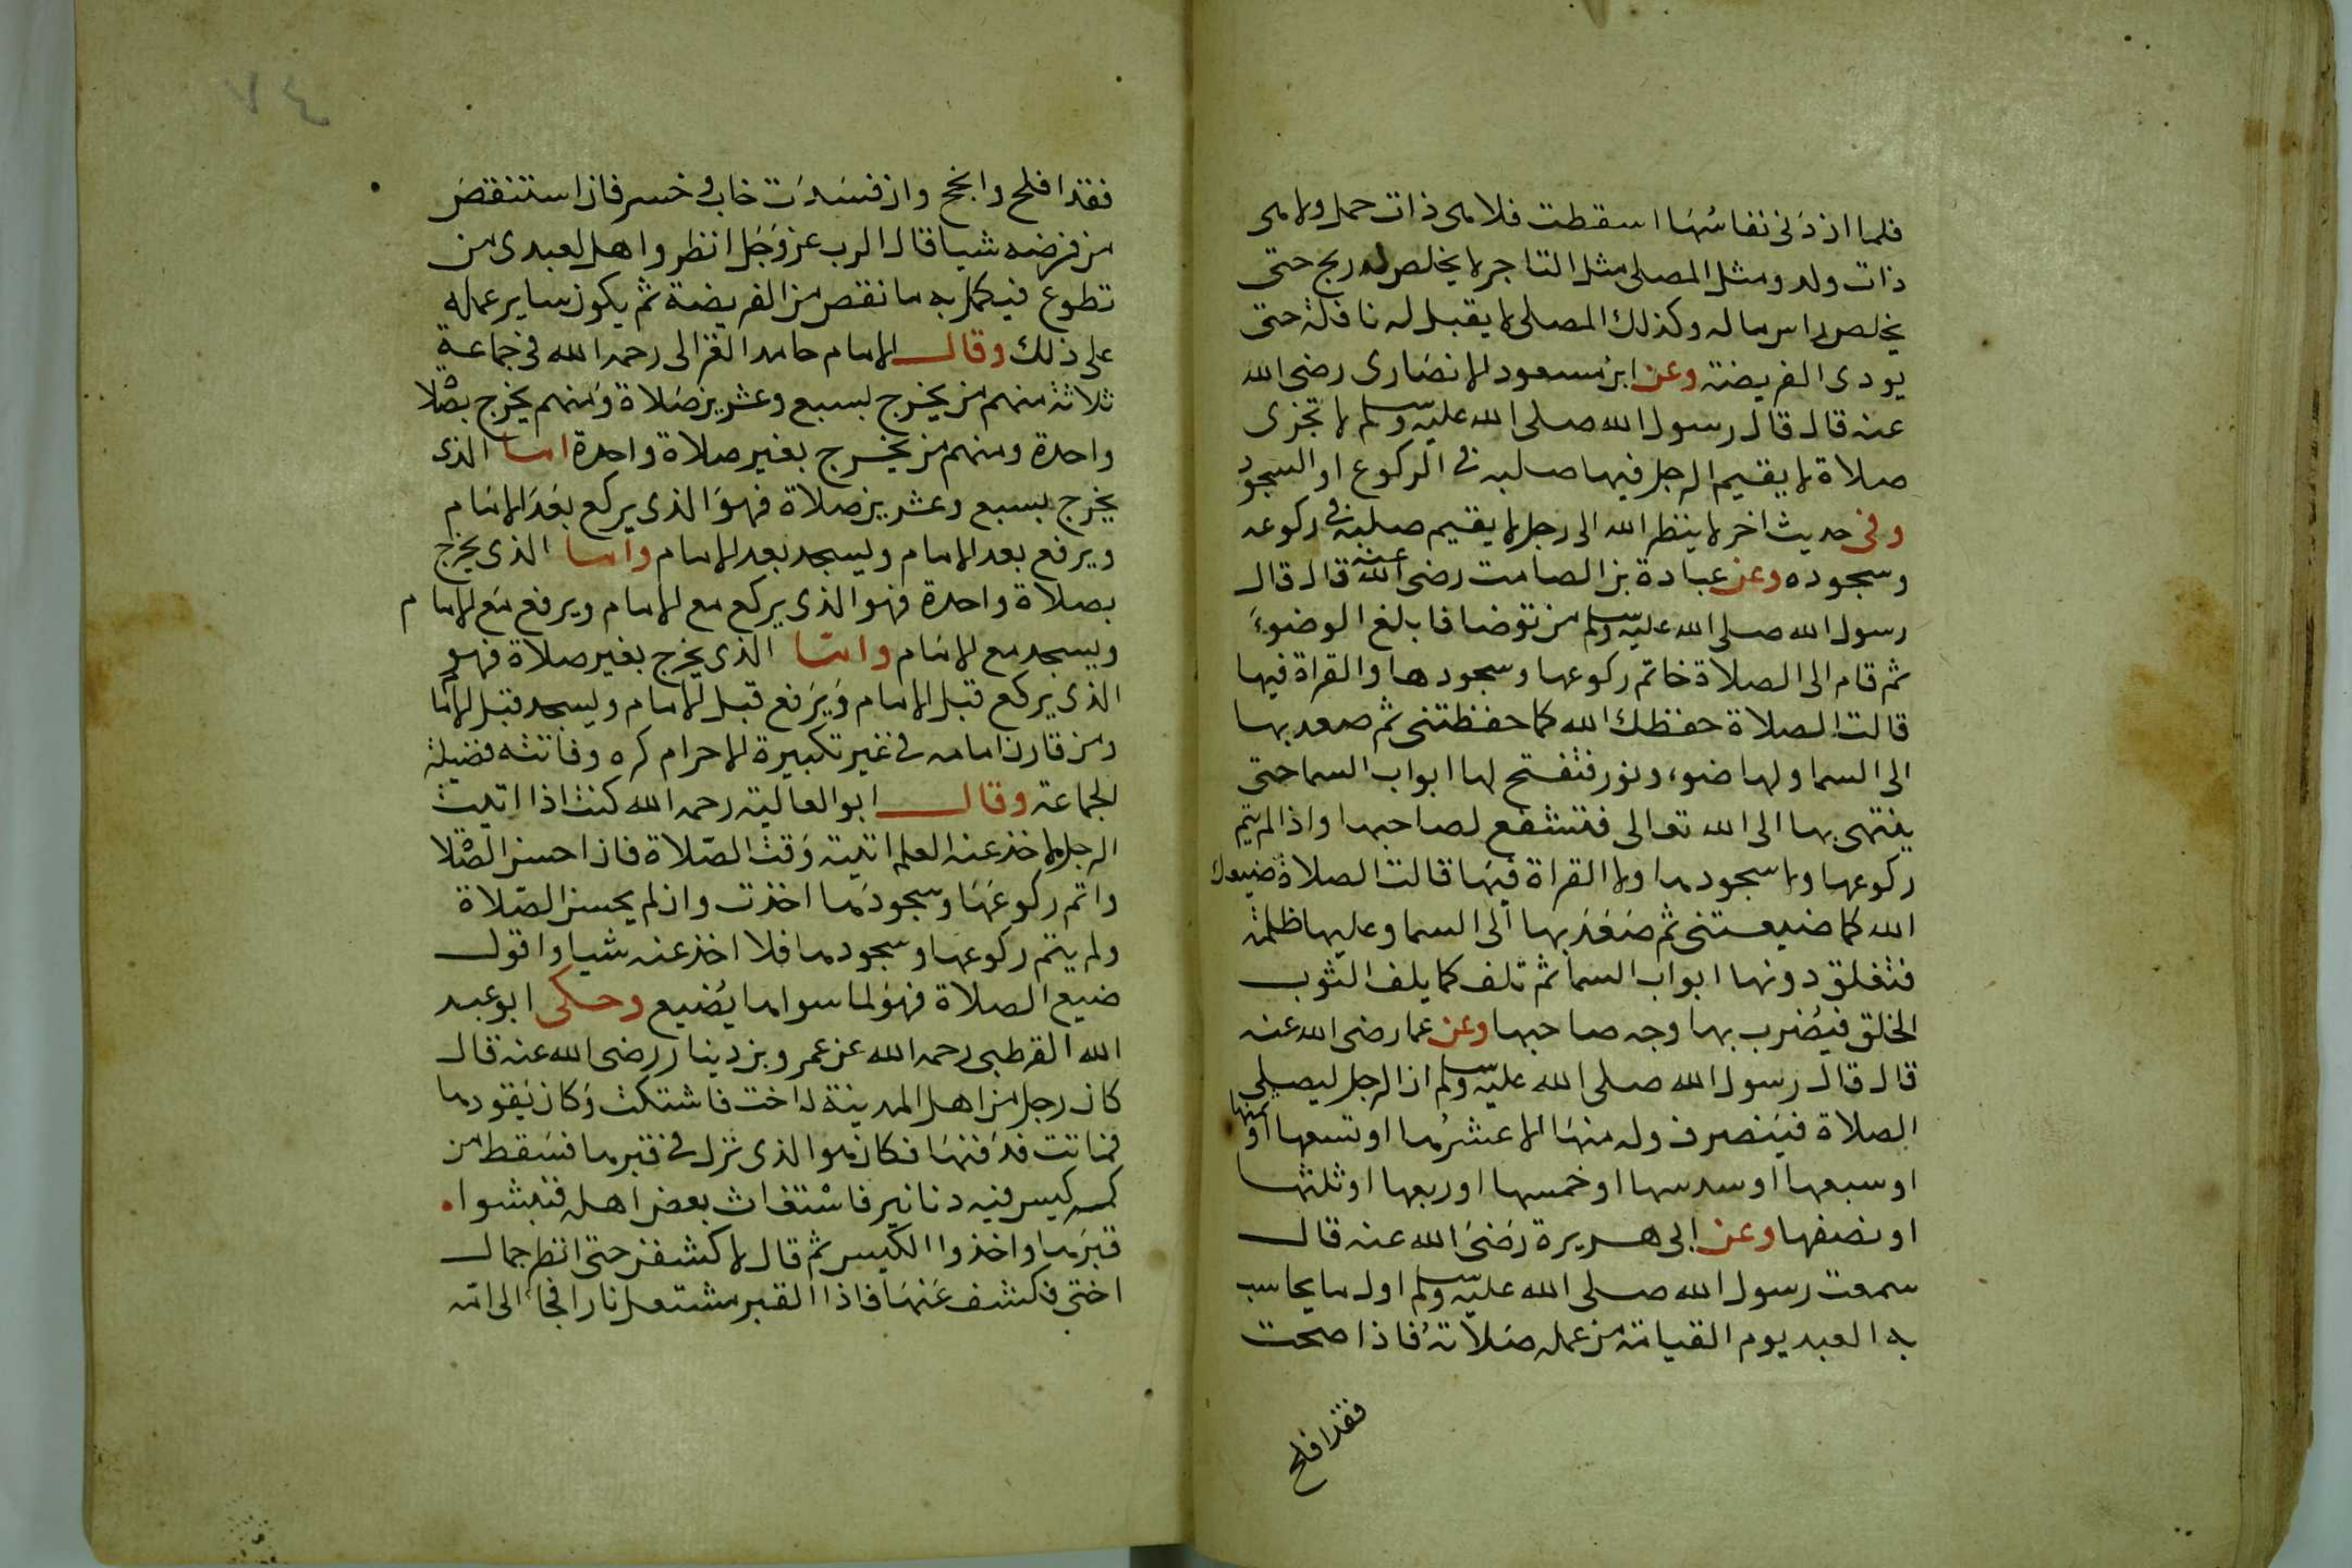 فلما اذ دنى نفاسها اسقطت فلا هى ذات حمل ولا هى
ذات ولد ومثل المصلى مثل التاجر لا يخلص له ربح حتى
يخلص راس ماله وكذلك المصلى لا يقبل له نافلة حتى
يودى الفريضة وعن ابن مسعود الانصارى رضى الله
عنه قال قال رسول الله صلى الله عليه وسلم لا تجزى
صلاة لا يقيم الرجل فيها صلبه فى الركوع او السجود
وفى حديث اخر لا ينظر الله الى رجل لا يقيم صلبه فى ركوعه
وسجوده وعن عبادة بن الصامت رضى الله عنه قال قال
رسول الله صلى الله عليه وسلم من توضا فابلغ الوضوء
ثم قام الى الصلاة فاتم ركوعها وسجودها والقراة فيها
قالت الصلاة حفظك الله كما حفظتنى ثم صعد بها
الى السما ولها ضوء ونور فتفتح لها ابواب السما حتى
ينتهى بها الى الله تعالى فتشفع لصاحبها واذا لم يتم
ركوعها ولا سجودها ولا القراة فيها قالت الصلاة ضيعك
الله كما ضيعتنى ثم صعد بها الى السما وعليها ظلمة
فتغلق دونها ابواب السما ثم تلف كما يلف الثوب
الخلق فيضرب بها وجه صاحبها وعن عمار رضى الله عنه
قال قال رسول الله صلى الله عليه وسلم ان الرجل ليصلى
الصلاة فينصرف وله منها الا عشرها او تسعها او ثمنها
او سبعها او سدسها او خمسها او ربعها او ثلثها
او نصفها وعن ابى هريرة رضى الله عنه قال
سمعت رسول الله صلى الله عليه وسلم اول ما يحاسب
به العبد يوم القيامة من عمله صلاته فاذا صحت
فقد افلح
٤٧
فقد افلح وانجح وان فسدت خاب و خسر فان استنقص
من فرضه شيا قال الرب عز وجل انظروا هل لعبدى من
تطوع فيكمل به ما نقص من الفريضة ثم يكون ساير عمله
على ذلك وقال الامام حامد الغزالى رحمه الله فى جماعة
ثلاثة منهم من يخرج بسبع وعشرين صلاة ومنهم يخرج بصلاة
واحدة ومنهم من يخرج بغير صلاة واحدة اما الذى
يخرج بسبع وعشرين صلاة فهو الذى يركع بعد الامام
ويرفع بعد الامام ويسجد بعد الامام واما الذى يخرج
بصلاة واحدة فهو الذى يركع مع الامام ويرفع مع الامام
ويسجد مع الامام واما الذى يخرج بغير صلاة فهو
الذى يركع قبل الامام ويرفع قبل الامام ويسجد قبل الامام
ومن قارن امامه فى غير تكبيرة الاحرام كره وفاتته فضيلة
الجماعة وقال ابو العالية رحمه الله كنت اذا اتيت
الرجل لاخذ عنه العلم اتيته وقت الصلاة فان احسن الصلاة
واتم ركوعها وسجودها اخذت وان لم يحسن الصلاة
ولم يتم ركوعها وسجودها فلا اخذ عنه شيا واقول
ضيع الصلاة فهو لما سواها يضيع وحكى ابو عبد
الله القرطبى رحمه الله عن عمرو بن دينار رضى الله عنه قال
كان رجل من اهل المدينة له اخت فاشتكت وكان يقودها
فماتت فدفنها فكان هو الذى نزل فى قبرها فسقط من
كمه كيس فيه دنانير فاستغاث بعض اهله فنبشوا
قبرها واخذوا الكيس ثم قال لاكشفن حتى انظر حال
اختى فكشف عنها فاذا القبر مشتعل نارا فجا الى امه